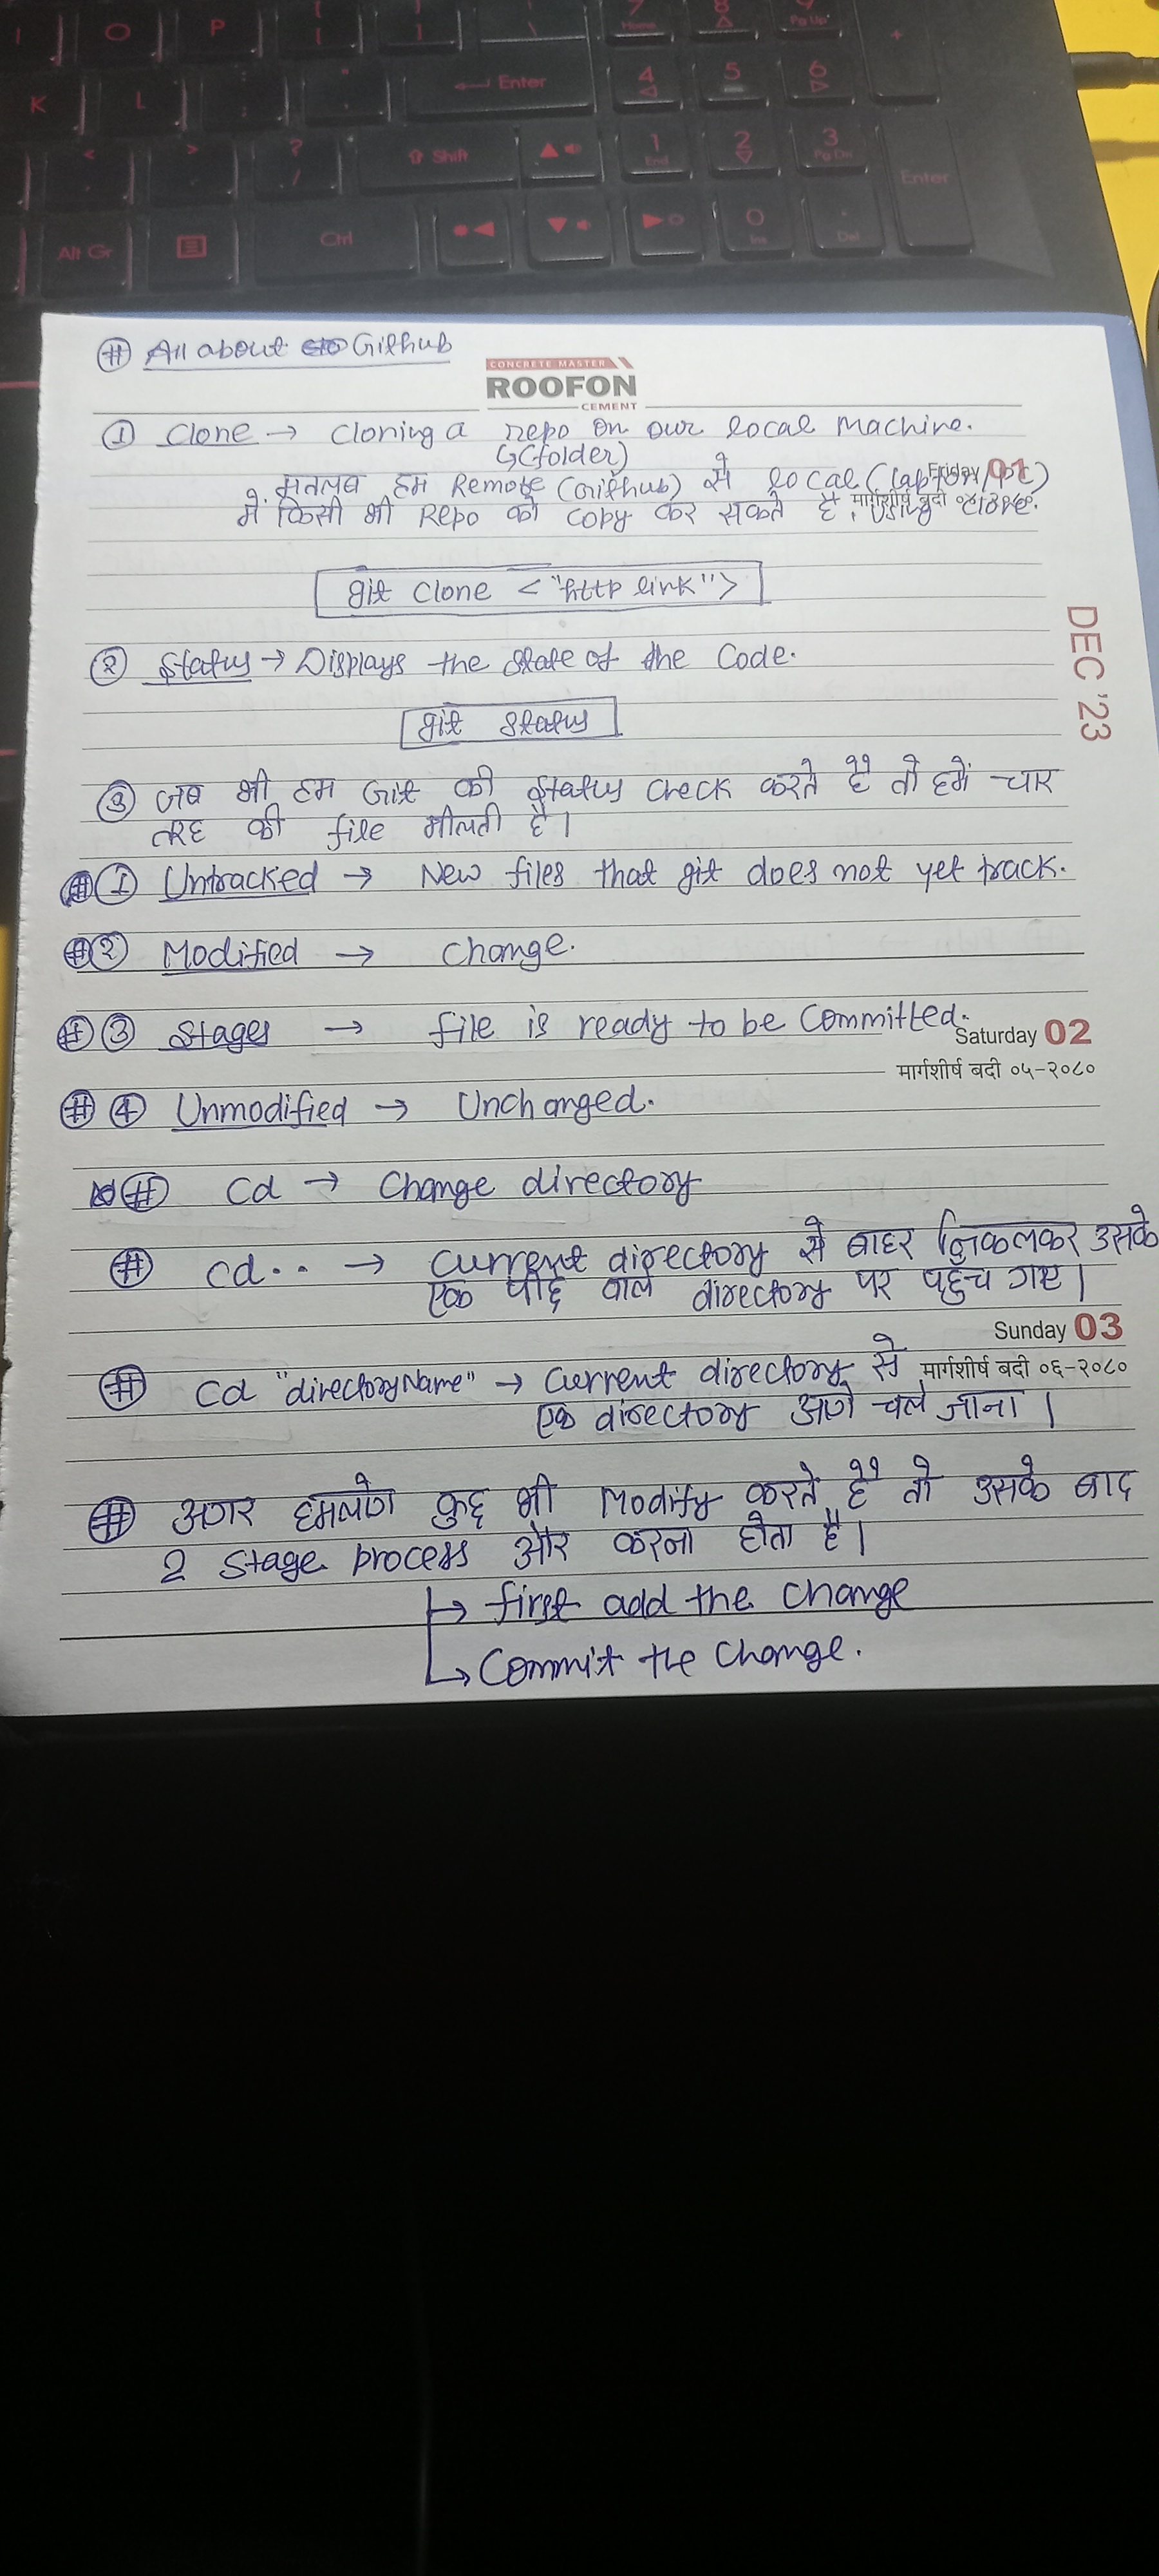 I O P { [ } ] | \ 7 Home 8 9 Pg Up +
K L : ; " ' Enter 4 5 6
< , > . ? / Shift 1 End 2 3 Pg Dn Enter
Alt Gr Ctrl 0 Ins . Del
# All about Github
CONCRETE MASTER
ROOFON
CEMENT
① Clone → Cloning a repo on our local machine.
↳(folder)
मतलब हम Remote (Github) से local (laptop/pc)
Friday 01
में किसी भी Repo को copy कर सकते है, using clone.
मार्गशीर्ष बदी
git clone <"http link">
DEC '23
② Status → Displays the state of the code.
git status
③ जब भी हम Git की status check करते है तो हमें चार
तरह की file मीलती है।
# ① Untracked → New files that git does not yet track.
# ② Modified → change.
# ③ Stages → file is ready to be committed.
Saturday 02
मार्गशीर्ष बदी ०५-२०८०
# ④ Unmodified → Unchanged.
# cd → change directory
# cd.. → current directory से बाहर निकलकर उसके
एक पीछे वाले directory पर पहुँच गए।
Sunday 03
मार्गशीर्ष बदी ०६-२०८०
# cd "directoryName" → current directory से
एक directory आगे चले जाना।
# अगर हमलोग कुछ भी Modify करते है तो उसके बाद
2 stage process और करना होता है।
↳ first add the change
↳ Commit the change.